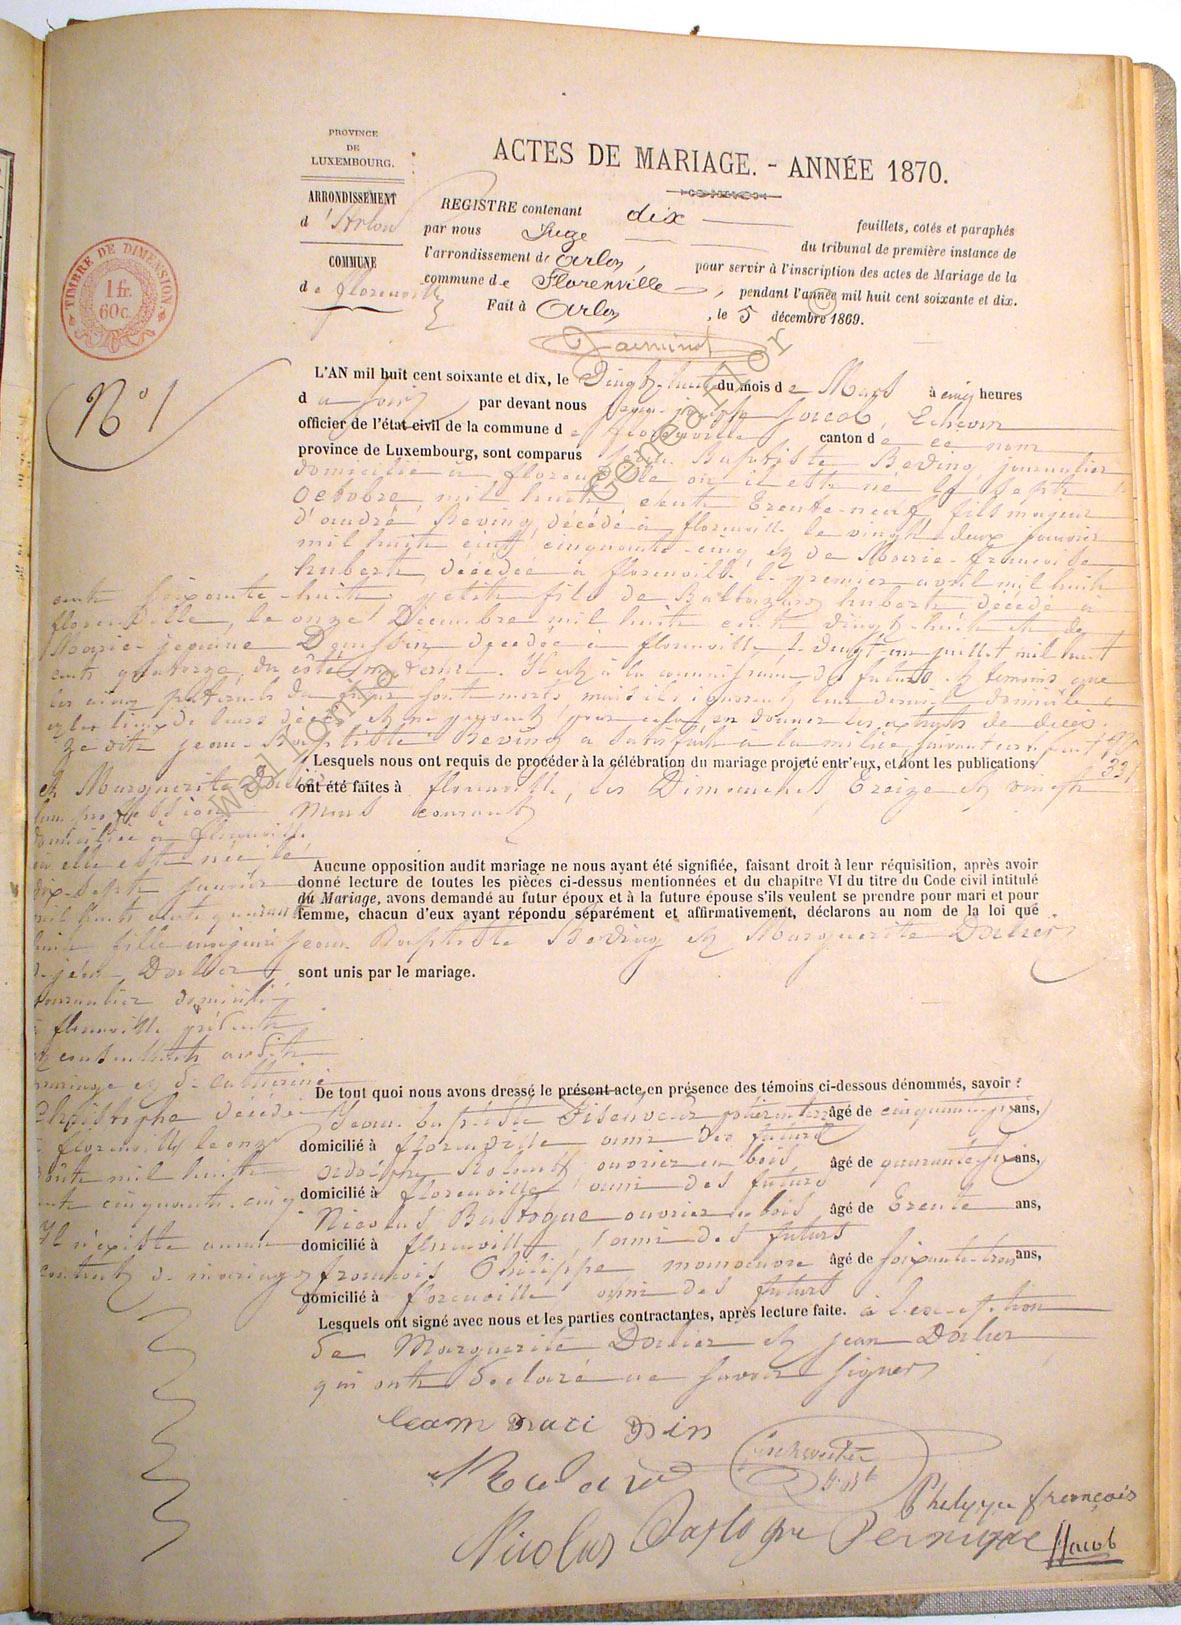 PROVINCE
DE
LUXEMBOURG.
ARRONDISSEMENT
d'Arlon
COMMUNE
de florenville
TIMBRE DE DIMENSION
1 fr.
60 c.
N° 1
ACTES DE MARIAGE. - ANNÉE 1870.
REGISTRE contenant dix feuillets, cotés et paraphés
par nous Juge du tribunal de première instance de
l'arrondissement de Arlon, pour servir à l'inscription des actes de Mariage de la
commune de Florenville, pendant l'année mil huit cent soixante et dix.
Fait à Arlon, le 5 décembre 1869.
L'AN mil huit cent soixante et dix, le Vingt-huit du mois de Mars à cinq heures
d u soir par devant nous jean-joseph Jacob, Echevin
officier de l'état civil de la commune de florenville canton de ce nom
province de Luxembourg, sont comparus Jean Baptiste Beving, journalier
domicilié à florenville où il est né le sept
Octobre mil huit cent trente-neuf, fils majeur
d'andré Beving, décédé à florenville le vingt deux janvier
mil huit cent cinquante-cinq et de Marie-françoise
hubert, décédée à florenville le premier avril mil huit
cent soixante-huit, petit fils de hubert, décédé à
florenville, le onze Décembre mil huit cent vingt-huit et de
Marie-jeanne décédée à florenville le vingt-un juillet mil huit
cent quatorze, du côté maternel. à la du futur et témoins que
les aïeux paternels du futur sont morts, mais ils ignorent leur dernier domicile
et le lieu de leurs décès et ne peuvent pour cela en donner les extraits de décès.
Le dit jean-Baptiste Beving a satisfait à la milice suivant certificat
et Marguerite Dorlier
sans profession
domiciliée à florenville
où elle est née le
dix-sept janvier
mil huit cent quarante
huit fille majeure
de jean Dorlier
journalier domicilié
à florenville présent
et consentant au dit
mariage et de catherine
Christophe décédée
à florenville le onze
août mil huit
cent cinquante-cinq
Il n'existe aucun
contrat de mariage
Lesquels nous ont requis de procéder à la célébration du mariage projeté entr'eux, et dont les publications
ont été faites à florenville, les Dimanches treize et vingt
Mars courant
Aucune opposition audit mariage ne nous ayant été signifiée, faisant droit à leur réquisition, après avoir
donné lecture de toutes les pièces ci-dessus mentionnées et du chapitre VI du titre du Code civil intitulé
du Mariage, avons demandé au futur époux et à la future épouse s'ils veulent se prendre pour mari et pour
femme, chacun d'eux ayant répondu séparément et affirmativement, déclarons au nom de la loi que
jean Baptiste Beving et Marguerite Dorlier
sont unis par le mariage.
De tout quoi nous avons dressé le présent acte, en présence des témoins ci-dessous dénommés, savoir :
Jean baptiste âgé de cinquante six ans,
domicilié à florenville ami des futurs
ouvrier en bois âgé de quarante six ans,
domicilié à florenville ami des futurs
Nicolas Bastogne ouvrier en bois âgé de trente ans,
domicilié à florenville, ami des futurs
françois Philippe manoeuvre âgé de soixante-trois ans,
domicilié à florenville ami des futurs
Lesquels ont signé avec nous et les parties contractantes, après lecture faite. à l'exception
de Marguerite Dorlier et jean Dorlier
qui ont déclaré ne savoir signer
Philippe françois
Nicolas Bastogne
JJacob
wallonia
Généanor ©